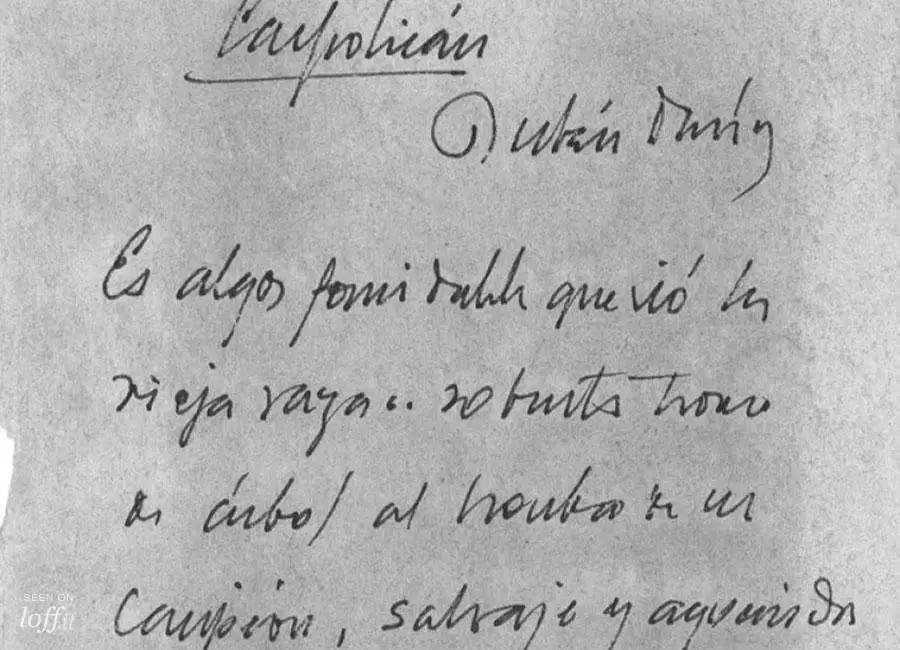 Caupolicán
Rubén Darío
Es algo formidable que vió la
vieja raza.. robusto tronco
de árbol al hombro de un
campeón, salvaje y aguerrido
SEEN ON
loff.it